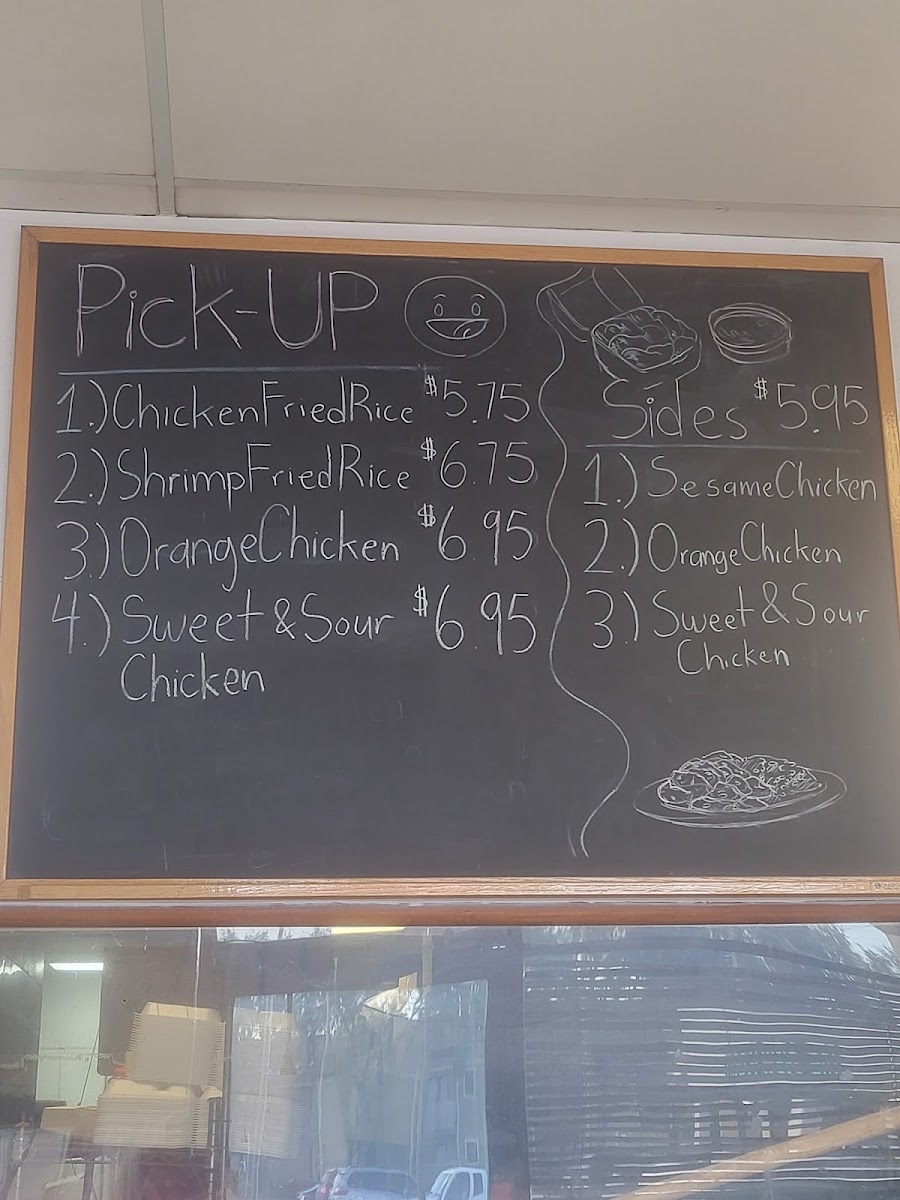 Pick-UP
1.) Chicken Fried Rice $5.75
2.) Shrimp Fried Rice $6.75
3.) Orange Chicken $6.95
4.) Sweet & Sour $6.95
Chicken
Sides $5.95
1.) Sesame Chicken
2.) Orange Chicken
3.) Sweet & Sour
Chicken